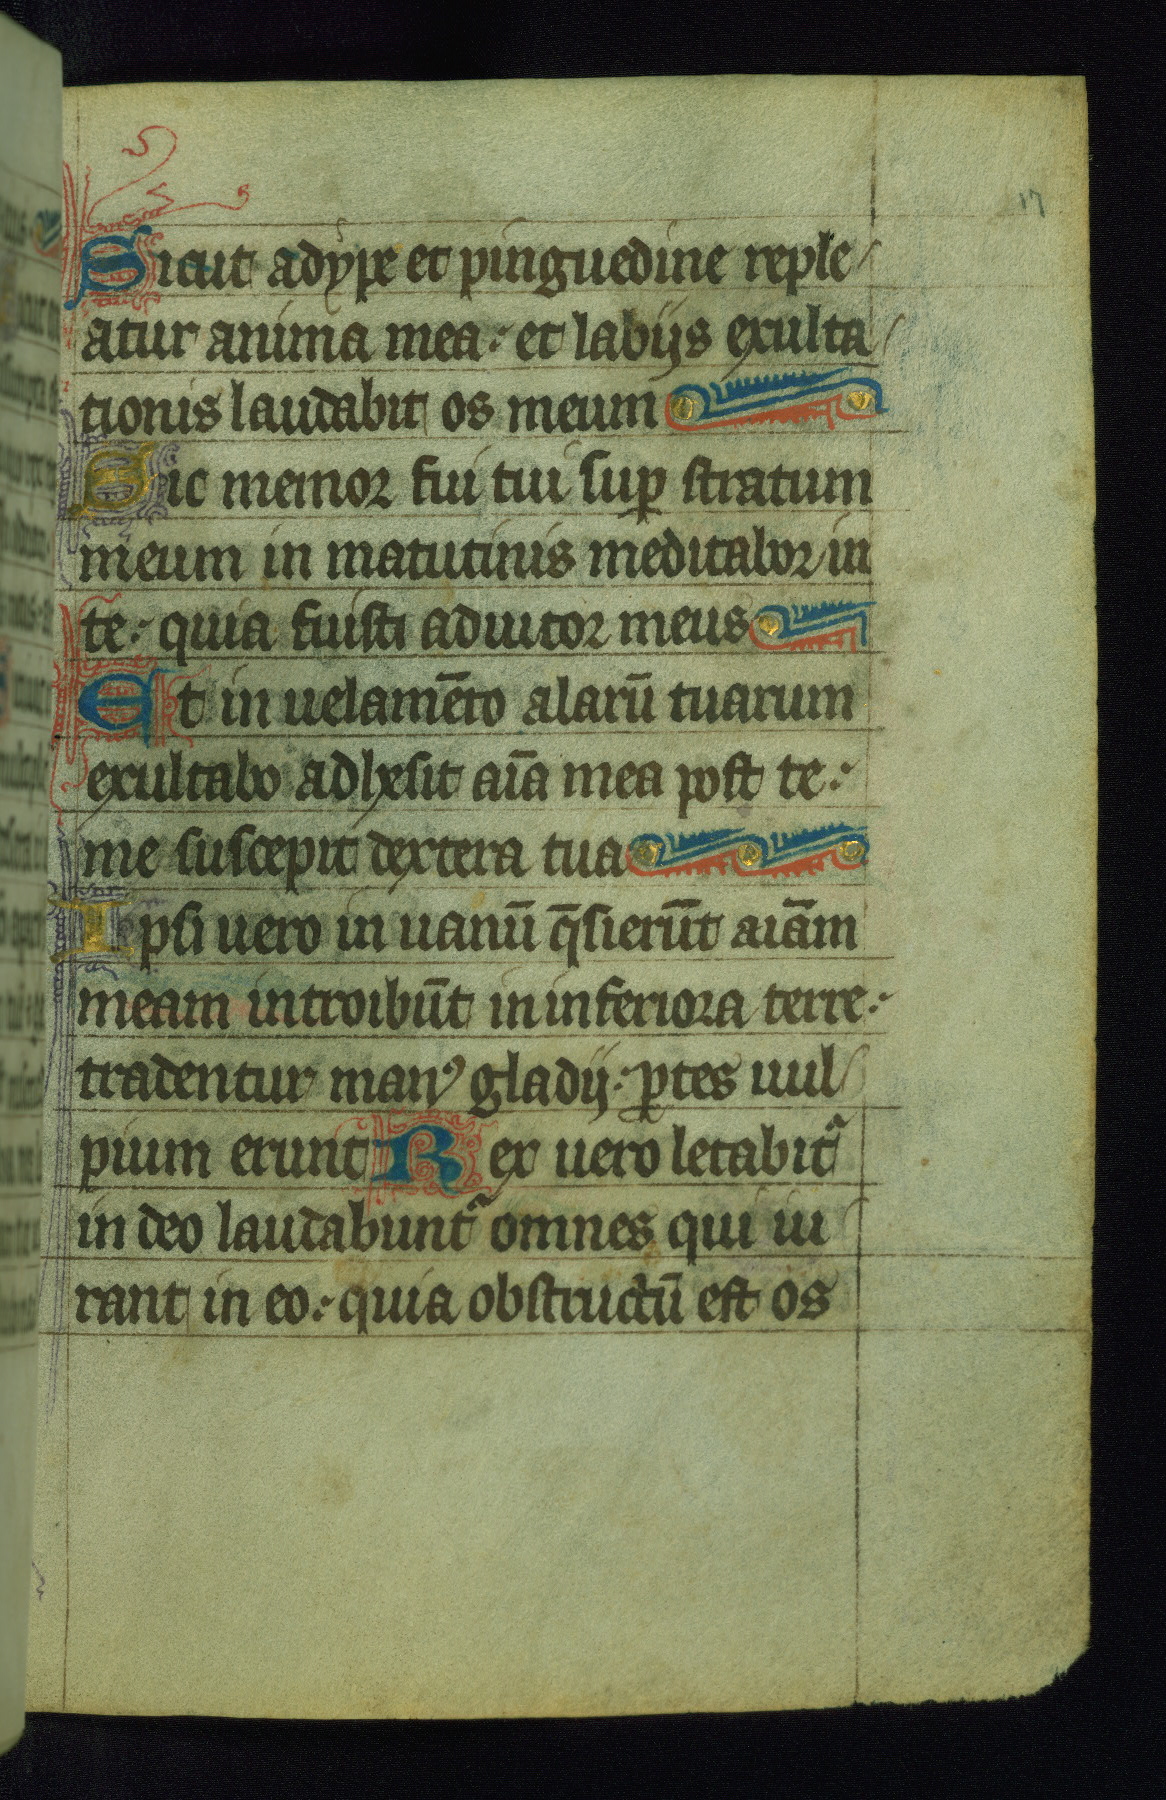 17
Sicut adype et pinguedine reple
atur anima mea: et labijs exulta
tionis laudabit os meum
Sic memor fui tui sup stratum
meum in matutinis meditabor in
te: quia fuisti adiutor meus
Et in uelamēto alarū tuarum
exultabo adhesit aīa mea post te:
me suscepit dextera tua
Ipsi uero in uanū q̄sierūt aīam
meam introibūt in inferiora terre:
tradentur manꝰ gladij: ꝑtes uul
pium erunt Rex uero letabit᷑
in deo laudabunt᷑ omnes qui iu
rant in eo: quia obstructū est os